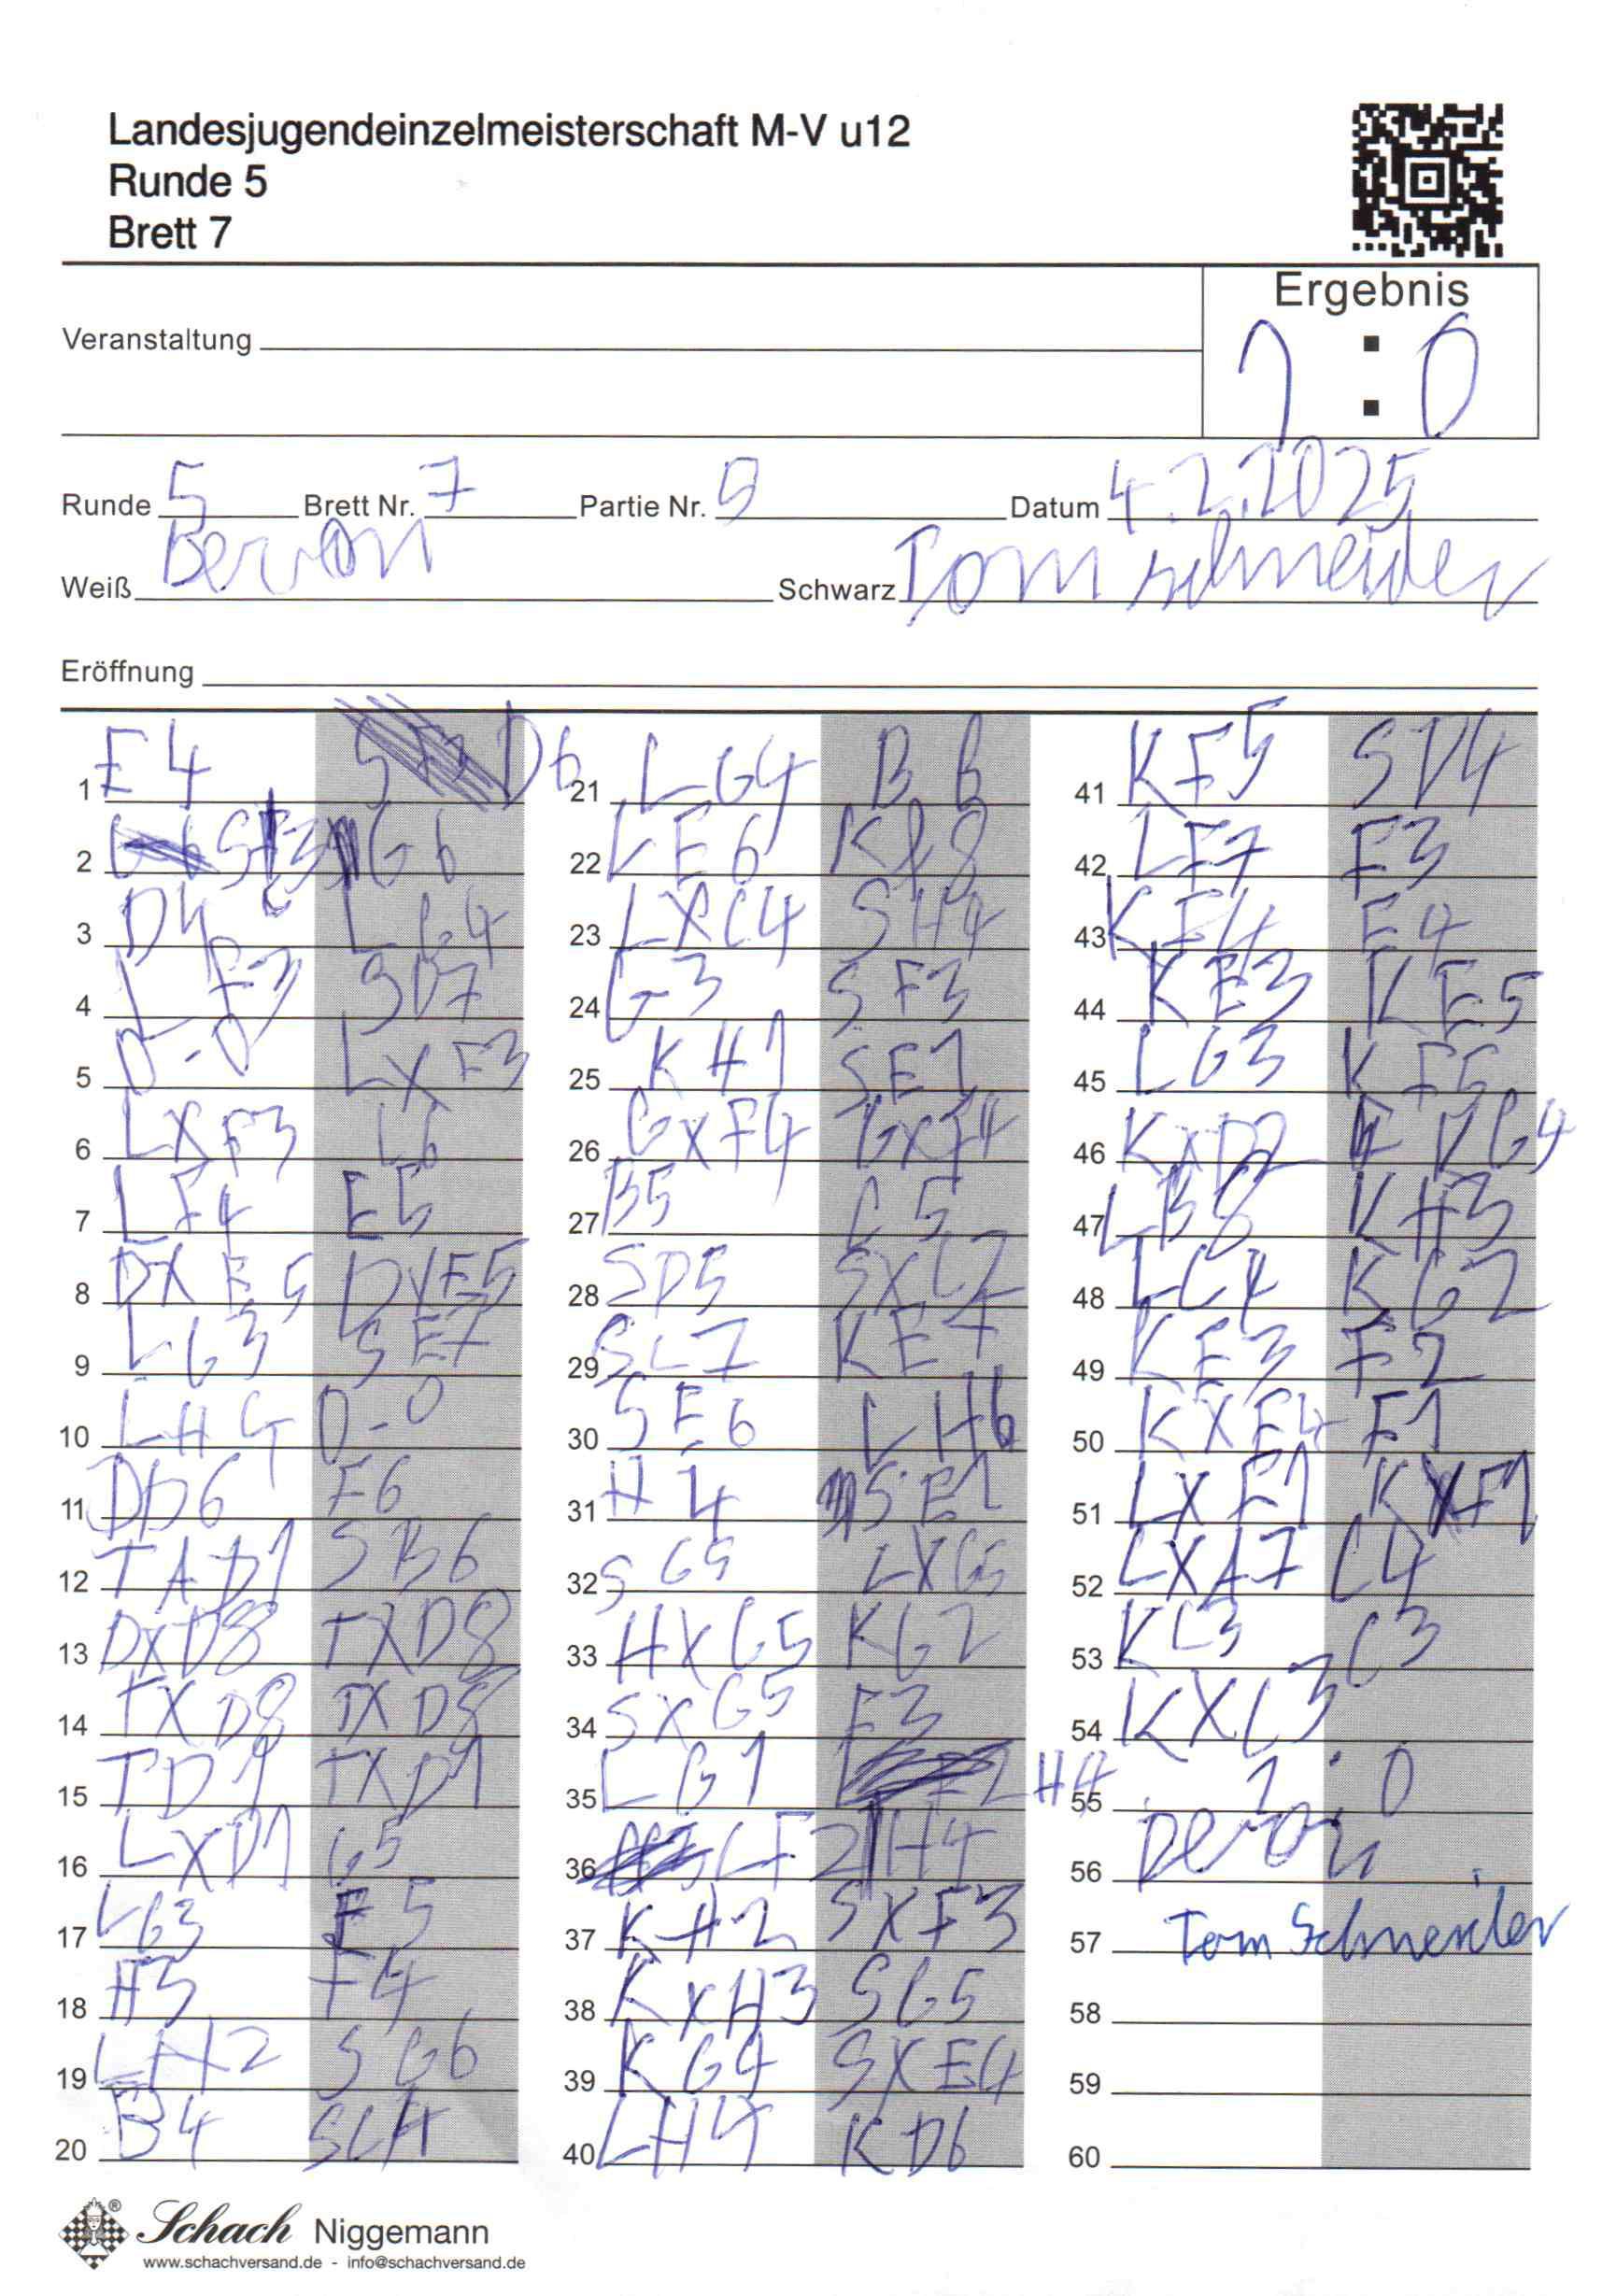 Landesjugendeinzelmeisterschaft M-V u12
Runde 5
Brett 7
Ergebnis
1 : 0
Veranstaltung
Runde 5 Brett Nr. 7 Partie Nr. 9 Datum 4.2.2025
Weiß Schwarz Tom schneider
Eröffnung
1 E4 D6
2 SF3 G6
3 D4 LG4
4 LE3 SD7
5 0-0 LXF3
6 LXF3 C6
7 LF4 E5
8 DXE5 DXE5
9 LG3 SE7
10 LHG 0-0
11 DD6 F6
12 TAD1 SB6
13 DXD8 TXD8
14 TXD8 TXD8
15 TD1 TXD1
16 LXD1 G5
17 LG3 F5
18 H3 F4
19 LH2 SG6
20 B4 SC4
21 LG4 B6
22 LE6 Kf8
23 LXC4 SH4
24 G3 SF3
25 KH1 SE1
26 GXF4 GXF4
27 B5 C5
28 SD5 SXC2
29 SC7 KE7
30 SE6 LH6
31 H4 SE1
32 SG5 LXG5
33 HXG5 KG2
34 SXG5 F3
35 LG1 H4
36 LF2 H4
37 KH2 SXF3
38 KXH3 SG5
39 KG4 SXE4
40 LH4 KD6
41 KF5 SD4
42 LF7 F3
43 KF4 E4
44 KE3 KE5
45 LG3 KF5
46 KXD2 KG4
47 LB8 KH3
48 LC4 KG2
49 KE3 F2
50 KXE4 F1
51 LXF1 KXF1
52 LXA7 C4
53 KC3 C3
54 KXC3
55 1:0
56
57 Tom Schneider
58
59
60
Schach Niggemann
www.schachversand.de - info@schachversand.de